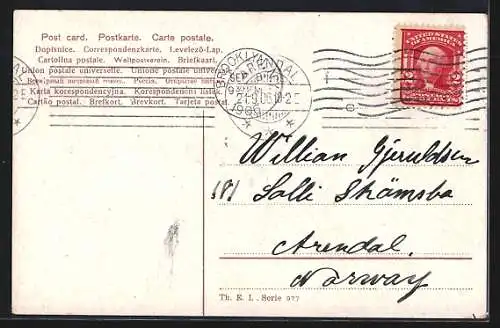 Post card. Postkarte. Carte postale.
Dopisnice. Correspondenzkarte. Levelező-Lap.
Cartolina postale. Weltpostverein. Briefkaart.
Union postale universelle. Unione postale universale.
Karta korespondencyjna. Korespondenční lístek.
Cartão postal. Brefkort. Brevkort. Tarjeta postal.
BROOKLYN
ARENDAL
21 9 06
UNITED STATES
OF AMERICA
2 2
TWO CENTS
Willian Gjeruldsen
Arendal.
Norway
Th. E. L. Serie 977